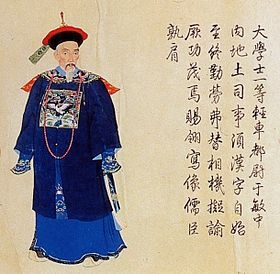 大學士一等輕車都尉于敏中
內地土司事須漢字自始
至終勤勞弗替相機擬諭
厥功茂焉賜翎寫像儒臣
孰肩